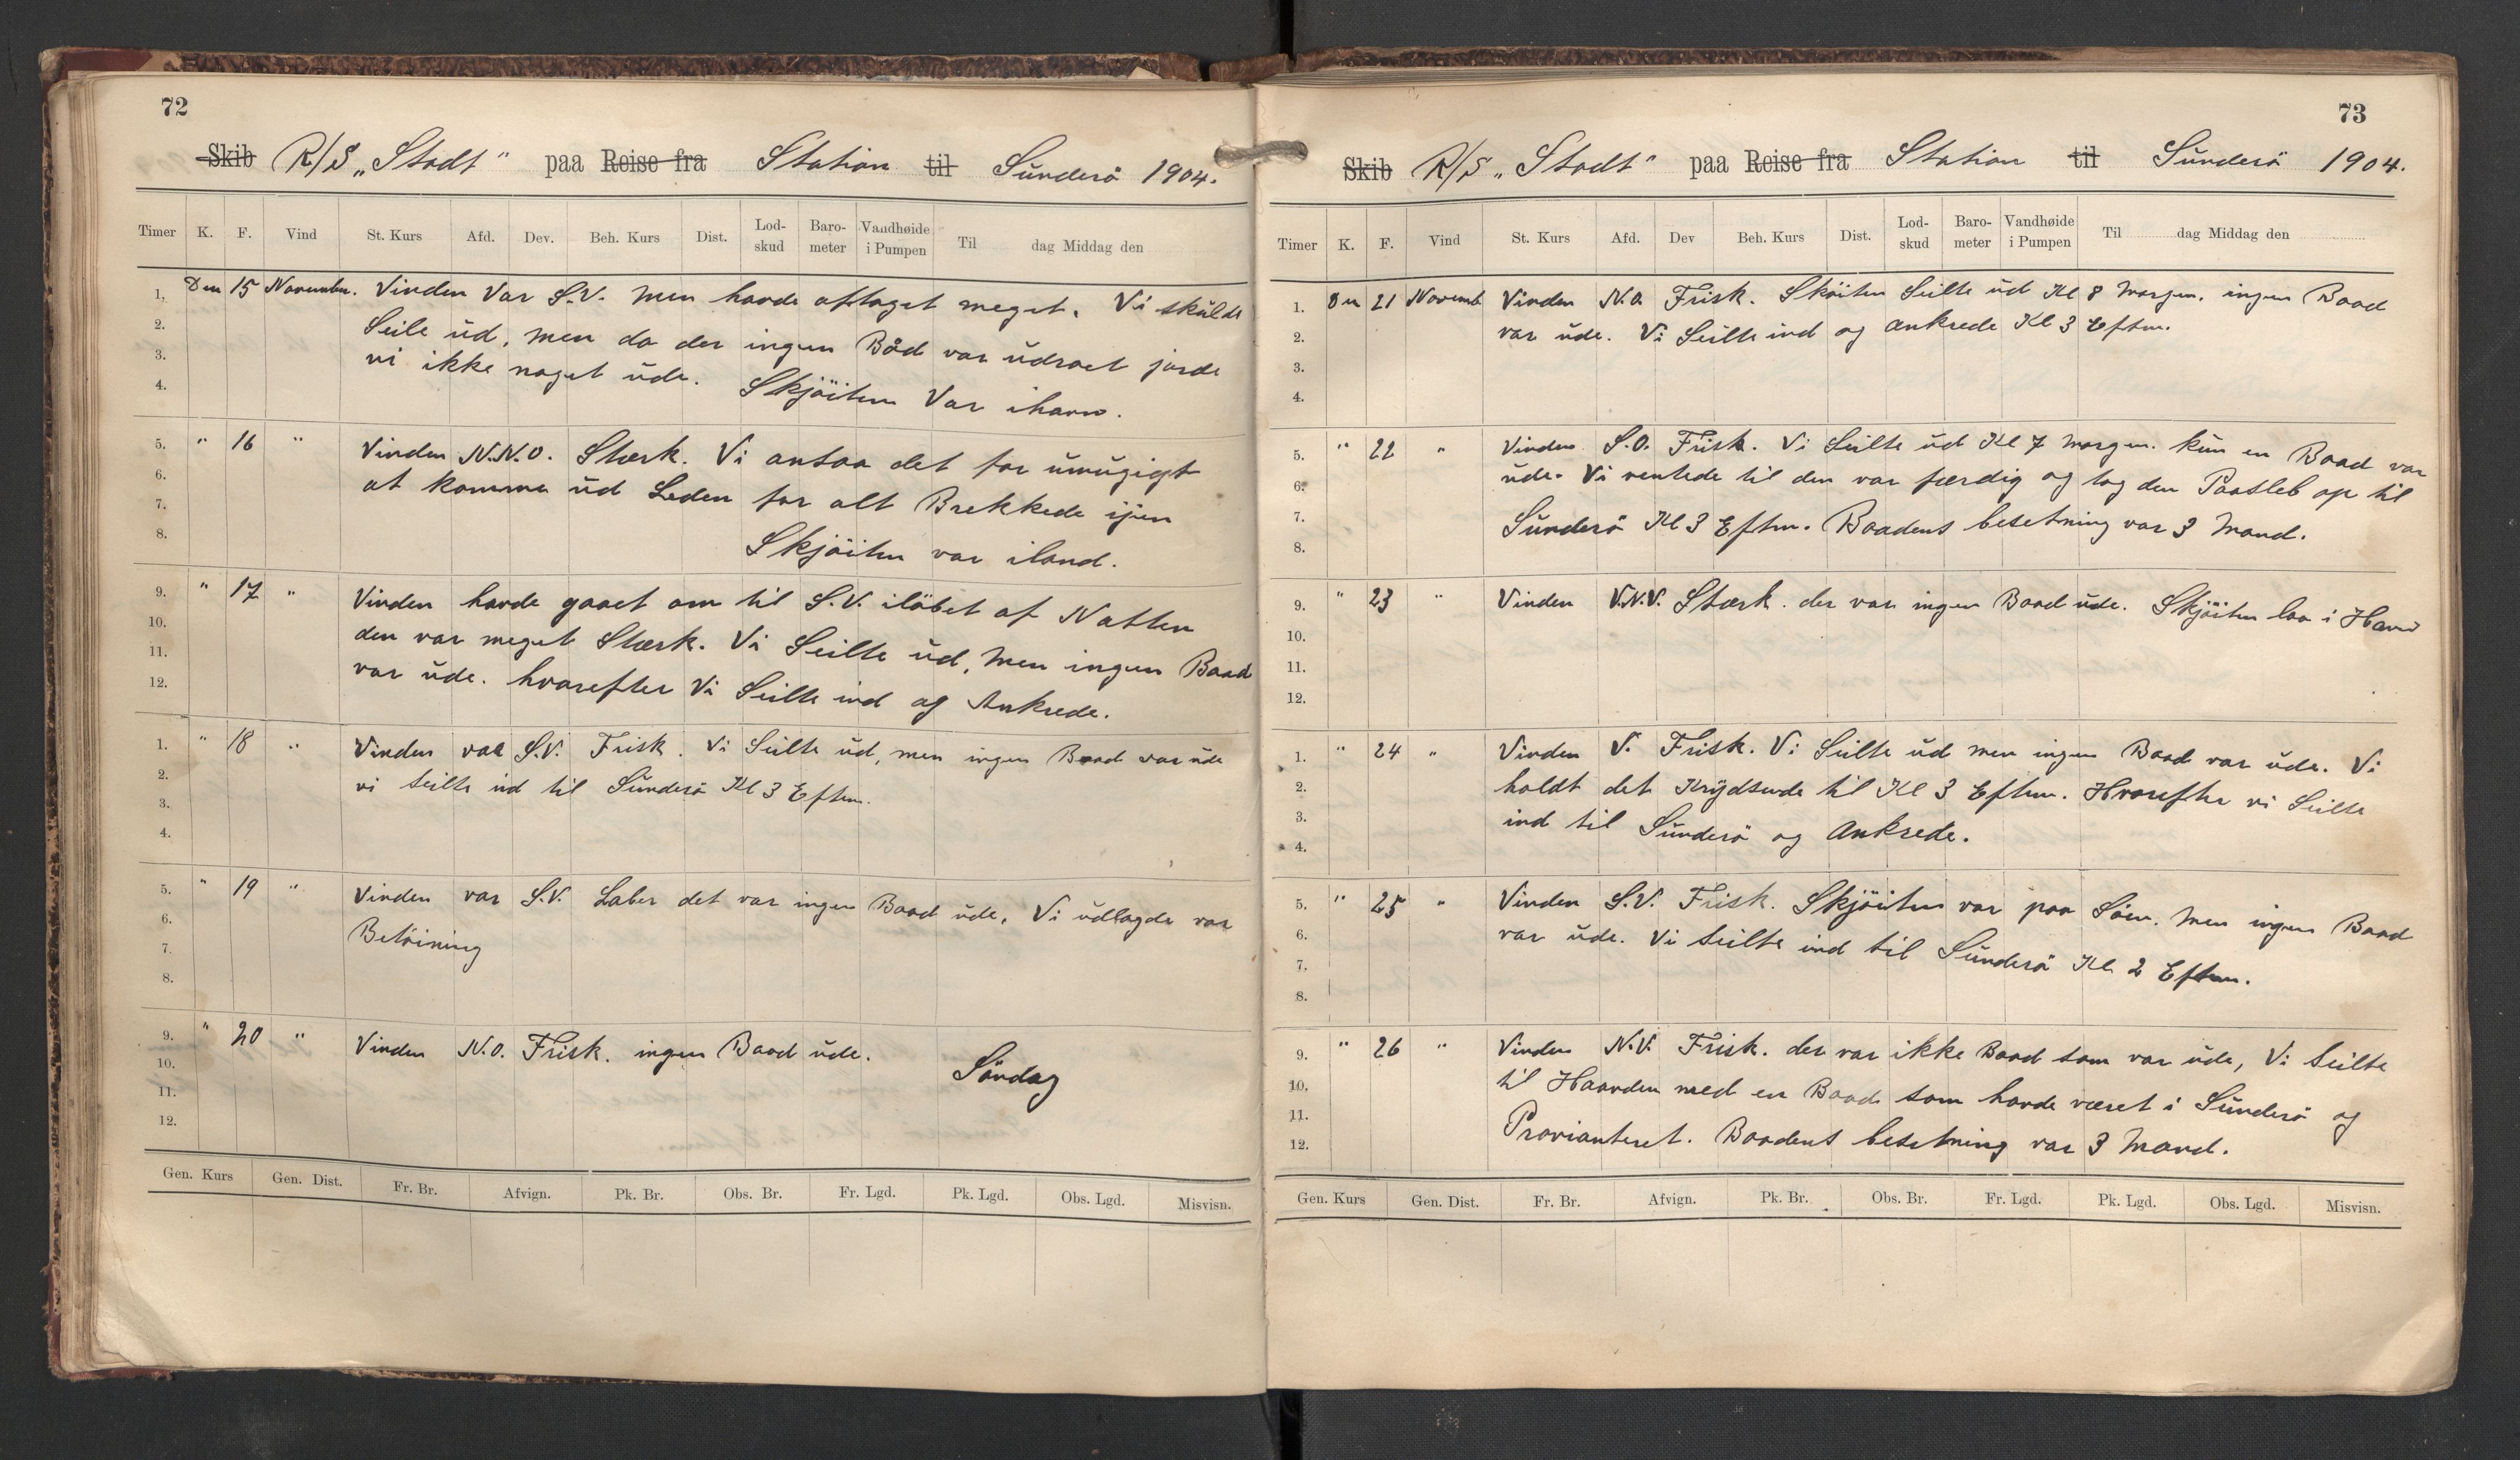 72
Skib R/S „Stadt" paa Reise fra Station til Sunderö 1904.
Timer K. F. Vind St. Kurs Afd. Dev. Beh. Kurs Dist. Lod-skud Baro-meter Vandhøide i Pumpen Til dag Middag den
1. Den 15 Novembr. Vinden Var S.V. Men havde aftaget meget. Vi skulde
2. Seile ud, men da der ingen Båd var udroet jorde
3. vi ikke noget ude. Skjöiten Var ihavn.
4.
5. " 16 " Vinden N.N.O. Stærk. Vi ansaa det for umugigt
6. at komme ud Leden for alt Brekkede ijen
7. Skjöiten var iland.
8.
9. " 17 " Vinden havde gaaet om til S.V. iløbet af Natten
10. den var meget Stærk. Vi Seilte ud, Men ingen Baad
11. var ude. hvorefter Vi Seilte ind og Ankrede.
12.
1. " 18 " Vinden var S.V. Frisk. Vi Seilte ud, men ingen Baad var ude
2. vi seilte ind til Sunderö Kl 3 Eftm.
3.
4.
5. " 19 " Vinden var S.V. Laber det var ingen Baad ude. Vi udlagde vor
6. Betöining
7.
8.
9. " 20 " Vinden N.O. Frisk. ingen Baad ude.
10. Söndag
11.
12.
Gen. Kurs Gen. Dist. Fr. Br. Afvign. Pk. Br. Obs. Br. Fr. Lgd. Pk. Lgd. Obs. Lgd. Misvisn.
73
Skib R/S „Stadt" paa Reise fra Station til Sunderö 1904.
Timer K. F. Vind St. Kurs Afd. Dev Beh. Kurs Dist. Lod-skud Baro-meter Vandhøide i Pumpen Til dag Middag den
1. Den 21 Novemb Vinden N.O. Frisk. Sköiten Seilte ud Kl 8 Morgen. ingen Baad
2. var ude. Vi Seilte ind og ankrede Kl 3 Eftm.
3.
4.
5. " 22 " Vinden S.O. Frisk. Vi Seilte ud Kl 7 Morgen. kun en Baad var
6. ude. Vi ventede til den var færdig og tog den Paasleb op til
7. Sunderö Kl 3 Eftm. Baadens besetning var 3 Mand.
8.
9. " 23 " Vinden V.N.V. Stærk. der var ingen Baad ude. Skjöiten laa i Havn
10.
11.
12.
1. " 24 " Vinden V. Frisk. Vi Seilte ud men ingen Baad var ude. Vi
2. holdt det Krydsende til Kl 3 Eftm. Hvorefter vi Seilte
3. ind til Sunderö og Ankrede.
4.
5. " 25 " Vinden S.V. Frisk. Skjöiten var paa Söen. Men ingen Baad
6. var ude. Vi Seilte ind til Sunderö Kl. 2 Eftm.
7.
8.
9. " 26 " Vinden N.V. Frisk. der var ikke Baad som var ude, Vi Seilte
10. til Haarden med en Baad som havde været i Sunderö og
11. Provianteret. Baadens besetning var 3 Mand.
12.
Gen. Kurs Gen. Dist. Fr. Br. Afvign. Pk. Br. Obs. Br. Fr. Lgd. Pk. Lgd. Obs. Lgd. Misvisn.